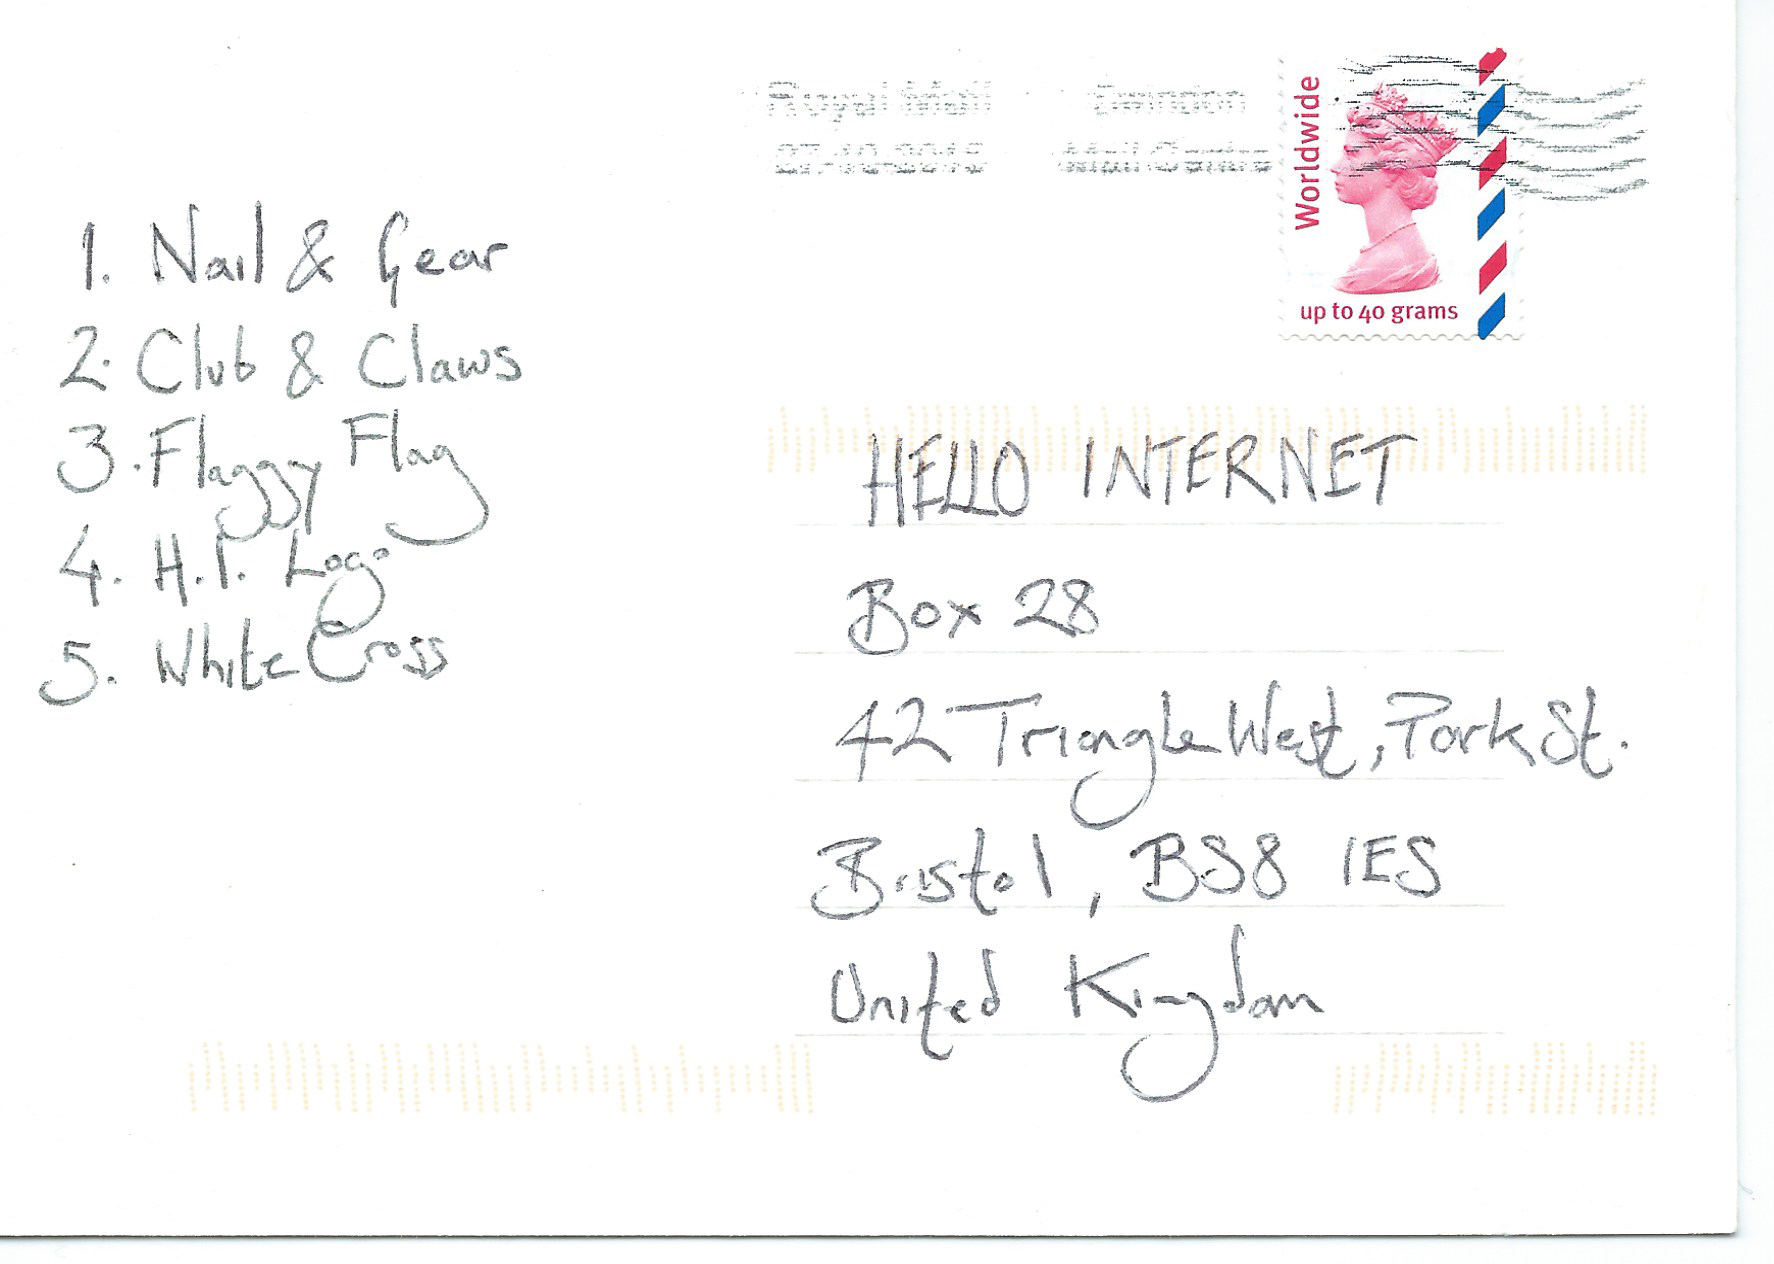 Royal Mail
Worldwide
up to 40 grams
1. Nail & Gear
2. Club & Claws
3. Flaggy Flag
4. H.I. Logo
5. White Cross
HELLO INTERNET
Box 28
42 Triangle West, Park St.
Bristol, BS8 1ES
United Kingdom